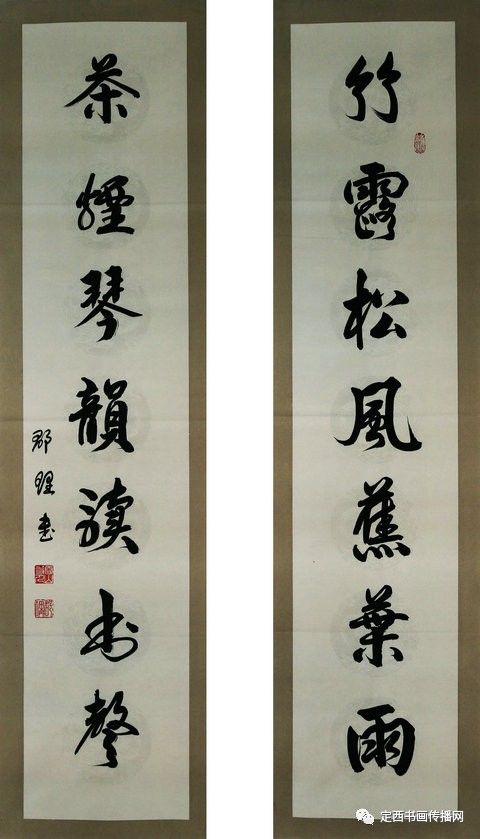 竹露松風蕉葉雨
茶煙琴韻讀書聲
郡理书
定西书画传播网